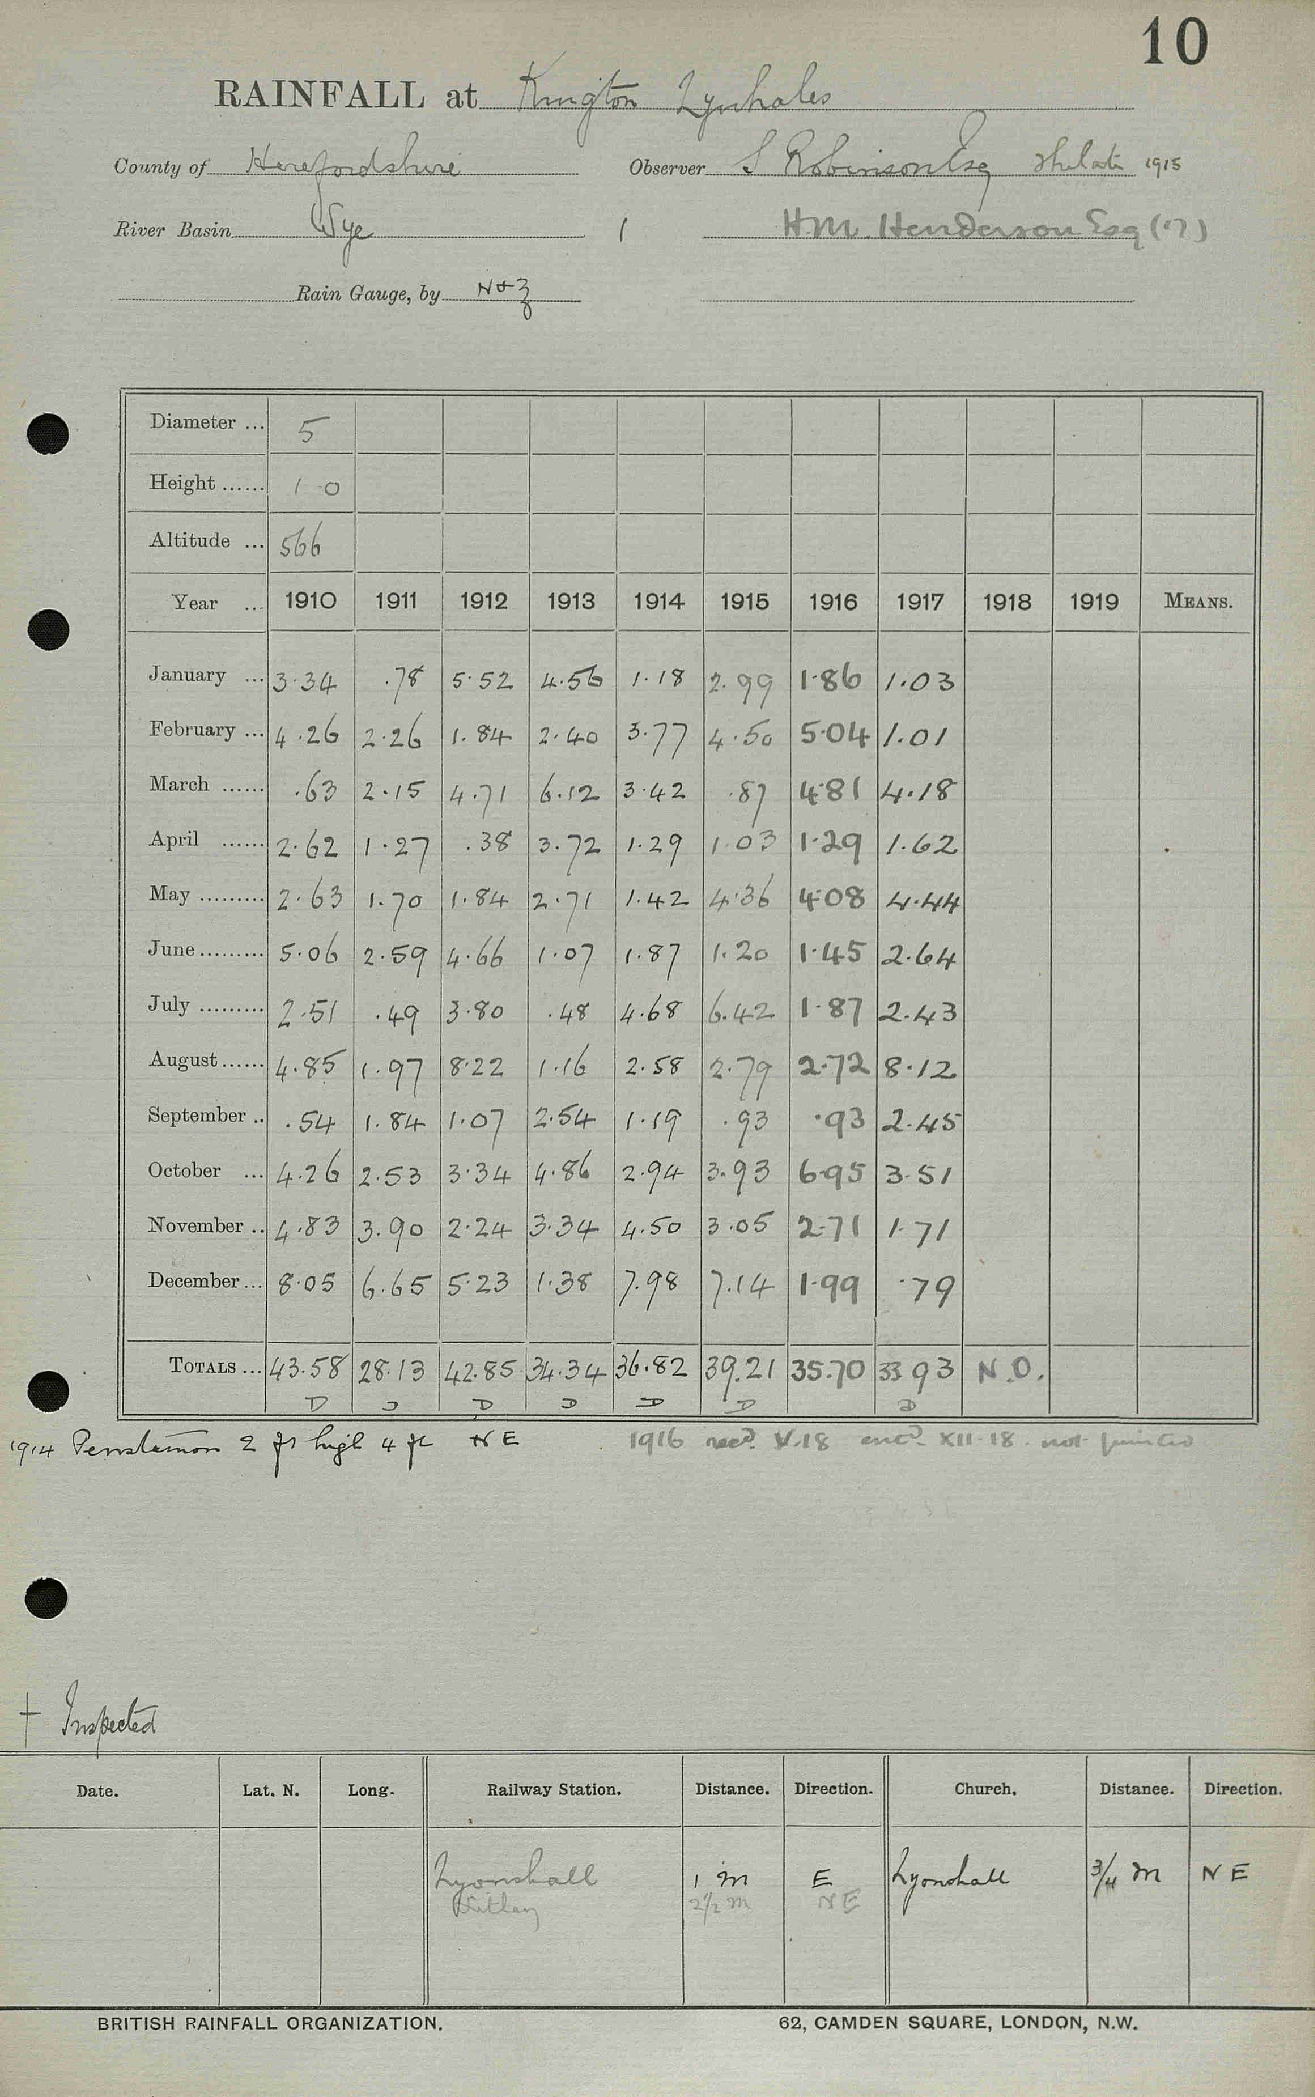 10
RAINFALL at Kington Lynhales
County of Herefordshire Observer S Robinson Esq 1915
River Basin Wye 1 H.M. Henderson Esq (17)
Rain Gauge, by N+Z
Diameter ... 5
Height ...... 1-0
Altitude ... 566
Year ... 1910 1911 1912 1913 1914 1915 1916 1917 1918 1919 MEANS.
January ... 3.34 .78 5.52 4.56 1.18 2.99 1.86 1.03
February ... 4.26 2.26 1.84 2.40 3.77 4.50 5.04 1.01
March ...... .63 2.15 4.71 6.12 3.42 .87 4.81 4.18
April ...... 2.62 1.27 .38 3.72 1.29 1.03 1.29 1.62
May .......... 2.63 1.70 1.84 2.71 1.42 4.36 4.08 4.44
June .......... 5.06 2.59 4.66 1.07 1.87 1.20 1.45 2.64
July .......... 2.51 .49 3.80 .48 4.68 6.42 1.87 2.43
August ...... 4.85 1.97 8.22 1.16 2.58 2.79 2.72 8.12
September .. .54 1.84 1.07 2.54 1.19 .93 .93 2.45
October ... 4.26 2.53 3.34 4.86 2.94 3.93 6.95 3.51
November .. 4.83 3.90 2.24 3.34 4.50 3.05 2.71 1.71
December ... 8.05 6.65 5.23 1.38 7.98 7.14 1.99 .79
TOTALS ... 43.58 28.13 42.85 34.34 36.82 39.21 35.70 33.93 N.O.
D D D D D D D
1914 Penstemon 2 ft high 4 ft NE 1916 recd. V.18 entd. XII.18 not printed
† Inspected
Date. Lat. N. Long. Railway Station. Distance. Direction. Church. Distance. Direction.
Lyonshall 1 m E Lyonshall 3/4 m NE
Titley 2 1/2 m NE
BRITISH RAINFALL ORGANIZATION. 62, CAMDEN SQUARE, LONDON, N.W.